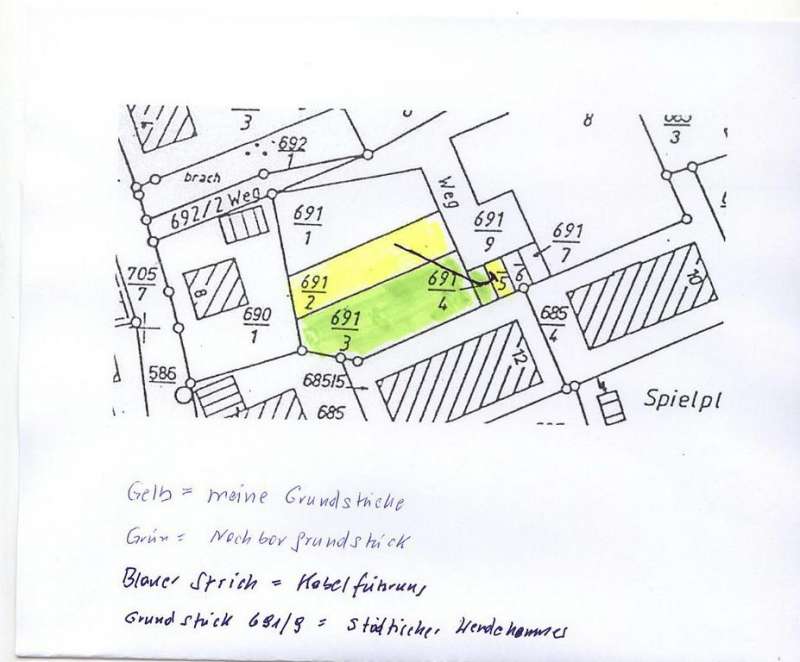 3
692
1
brach
692/2 Weg
Weg
8
3
691
1
691
9
691
7
705
7
8
691
2
691
4
5
6
690
1
691
3
685
4
10
586
685/5
685
12
Spielpl
Gelb = meine Grundstücke
Grün = Nachbargrundstück
Blauer Strich = Kabelführung
Grundstück 691/9 = Städtischer Wendehammer